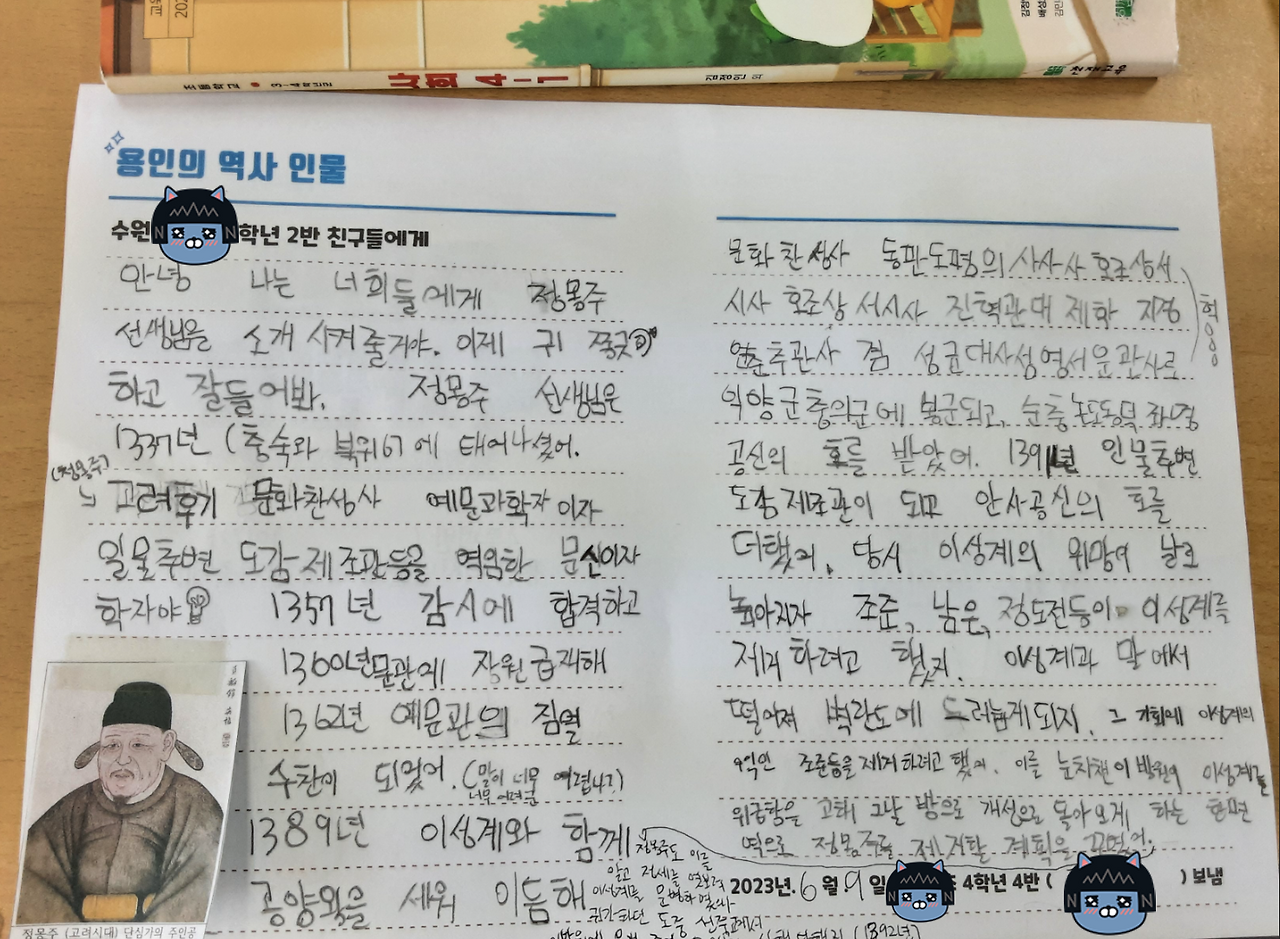 초등학교 3~4학년군
사회 4-1
김정인 외
천재교육
용인의 역사 인물
수원 학년 2반 친구들에게
안녕 나는 너희들에게 정몽주
선생님을 소개 시켜줄거야. 이제 귀 쫑긋
하고 잘들어봐. 정몽주 선생님은
1337년 (충숙와 복위6)에 태어나셨어.
(정몽주)
고려후기 문화찬성사 예문과학자이자
일물추변 도감제조관등을 역임한 문신이자
학자야 1357년 감시에 합격하고
1360년문관에 장원급제해
1362년 예문관의 검열
수찬이 되었어. (말이 너무 어렵나?)
너무 어려군
1389년 이성계와 함께
공양왕을 세워 이듬해
정몽주 (고려시대) 단심가의 주인공
문화찬성사 동판도평의사사사 호조상서
시사 호조상서시사 진현관대제학 지경
연춘추관사 겸 성균대사성영서운관사로
익양군충의군에 봉군되고, 순충논도동덕좌명
공신의 호를 받았어. 1391년 인물추변
도감제조관이 되고 안사공신의 호를
더했어. 당시 이성계의 위망이 날로
높아지자 조준, 남은, 정도전등이 이성계를
제거하려고 했지. 이성계과 말에서
떨어져 벽란도에 드러눕게되지. 그 기회에 이성계의
우익인 조준등을 제거하려고 했어. 이를 눈치챈 이방원이 이성계를
위급함을 고해 그날 밤으로 개성으로 돌아오게 하는 한편
역으로 정몽주를 제거할 계획을 꾸몄어.
정몽주도 이를
알고 정세를 엿보려
이성계를 문병하였으나
귀가하던 도중 선죽교에서
(1392년)
2023년. 6월 9일 4학년 4반 ( ) 보냄